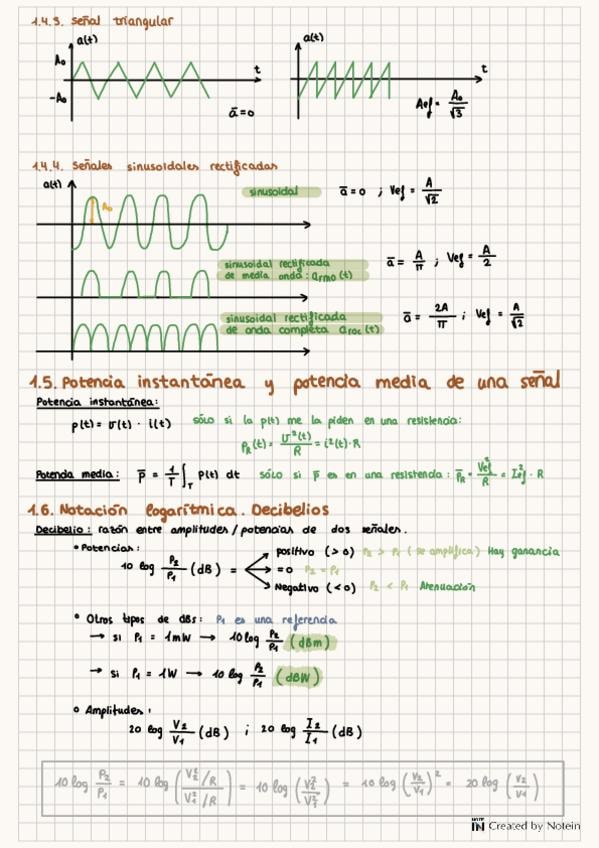 1.4.3. Señal triangular
a(t)
a(t)
A₀
t
t
-A₀
ā=0
Aef = A₀/√3
1.4.4. Señales sinusoidales rectificadas
a(t)
A₀
sinusoidal
ā=0 ; Vef = A/√2
sinusoidal rectificada
de media onda: aᵣₘₒ(t)
ā = A/π ; Vef = A/2
sinusoidal rectificada
de onda completa aᵣₒc(t)
ā = 2A/π ; Vef = A/√2
1.5. Potencia instantánea y potencia media de una señal
Potencia instantánea:
p(t) = v(t) · i(t) sólo si la p(t) me la piden en una resistencia:
p_R(t) = v²(t)/R = i²(t)·R
Potencia media: p̄ = 1/T ∫_T p(t) dt sólo si p̄ es en una resistencia: p̄_R = Vef²/R = Ief² · R
1.6. Notación logarítmica. Decibelios
Decibelio: razón entre amplitudes/potencias de dos señales.
• Potencias:
positivo (>0) P₂ > P₁ (se amplifica) Hay ganancia
10 log P₂/P₁ (dB) = = 0 P₂ = P₁
Negativo (<0) P₂ < P₁ Atenuación
• Otros tipos de dBs: P₁ es una referencia
→ si P₁ = 1mW → 10 log P₂/P₁ (dBm)
→ si P₁ = 1W → 10 log P₂/P₁ (dBW)
• Amplitudes:
20 log V₂/V₁ (dB) ; 20 log I₂/I₁ (dB)
10 log P₂/P₁ = 10 log (V₂²/R / V₁²/R) = 10 log (V₂²/V₁²) = 10 log (V₂/V₁)² = 20 log (V₂/V₁)
NOTE IN Created by Notein